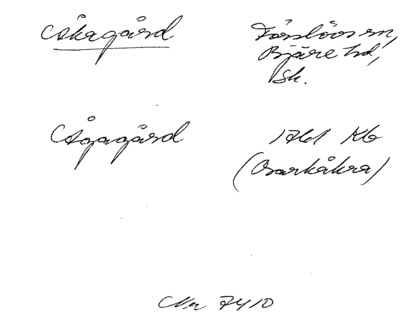 Åkagård Förslövs sn,
Bjäre hd,
Sk.
Ågagård 1761 Kb
(Barkåkra)
Nr 7410